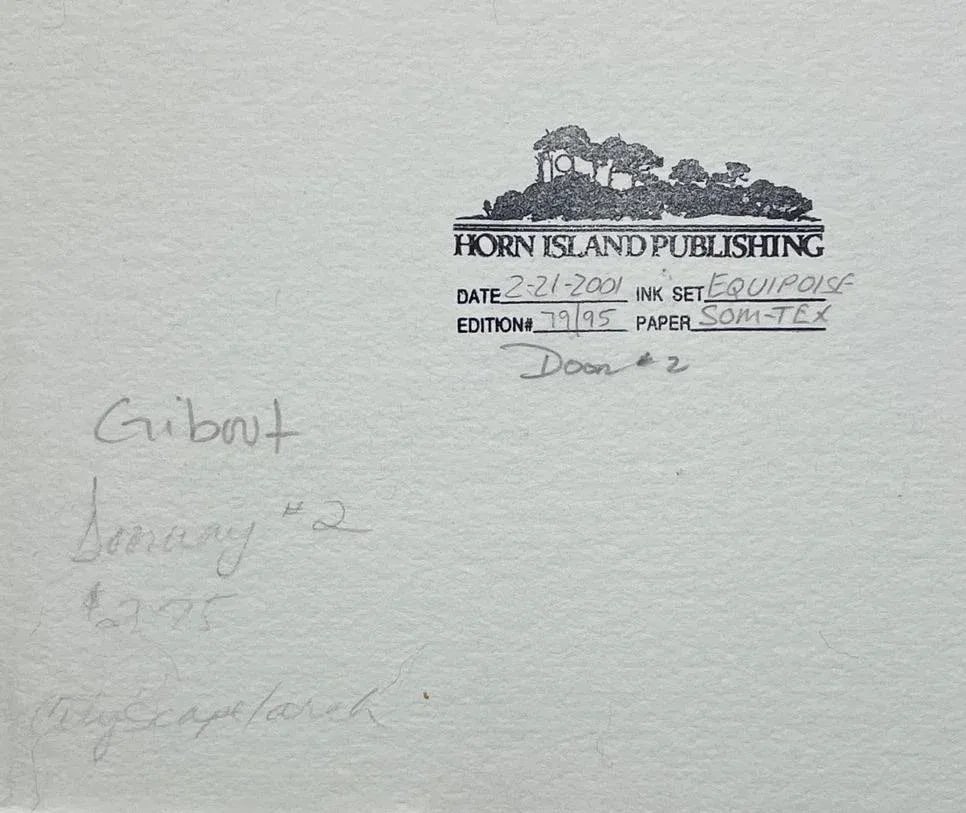 HORN ISLAND PUBLISHING
DATE 2-21-2001 INK SET EQUIPOISE
EDITION# 79/95 PAPER SOM-TEX
Door #2
Gibout
Doorway #2
$275
Cityscape/arch